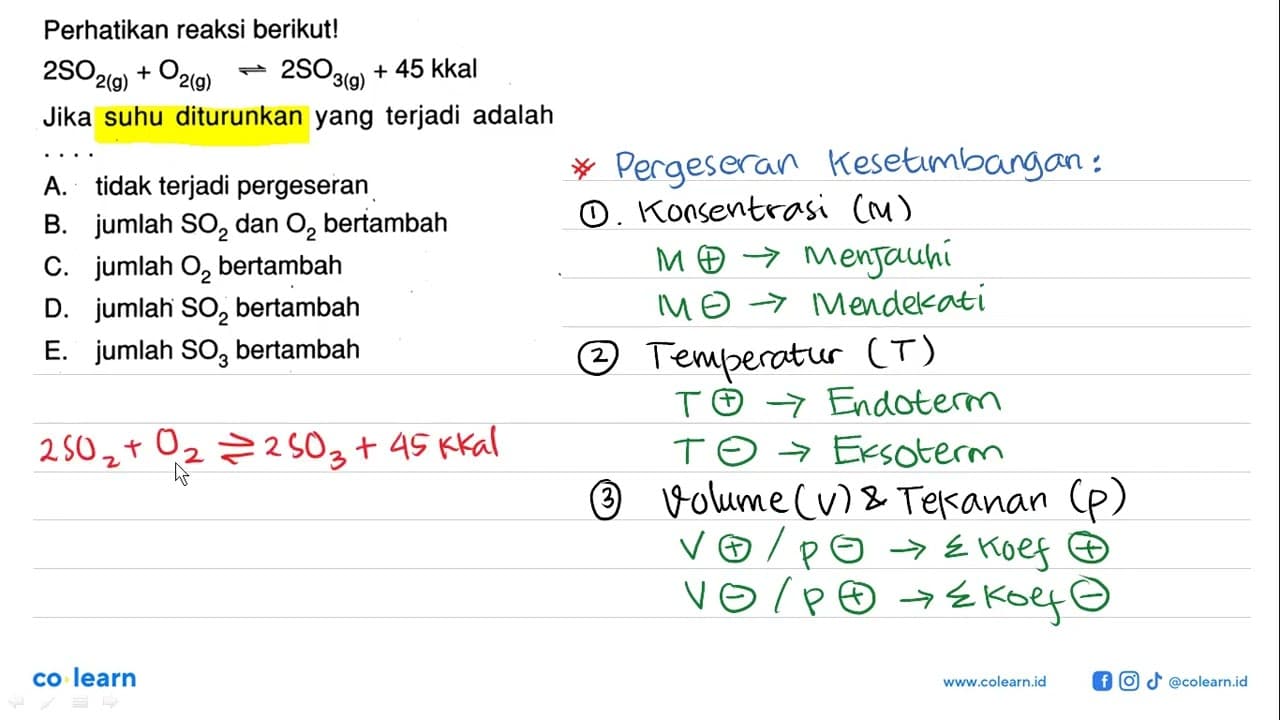 Perhatikan reaksi berikut!
2SO₂(g) + O₂(g) ⇌ 2SO₃(g) + 45 kkal
Jika suhu diturunkan yang terjadi adalah
. . . .
A. tidak terjadi pergeseran
B. jumlah SO₂ dan O₂ bertambah
C. jumlah O₂ bertambah
D. jumlah SO₂ bertambah
E. jumlah SO₃ bertambah
2SO₂ + O₂ ⇌ 2SO₃ + 45 KKal
* Pergeseran Kesetimbangan :
①. Konsentrasi (M)
M ⊕ → Menjauhi
M ⊖ → Mendekati
② Temperatur (T)
T ⊕ → Endoterm
T ⊖ → Eksoterm
③ Volume (V) & Tekanan (p)
V ⊕ / p ⊖ → Σ Koef ⊕
V ⊖ / p ⊕ → Σ Koef ⊖
co learn
www.colearn.id
@colearn.id